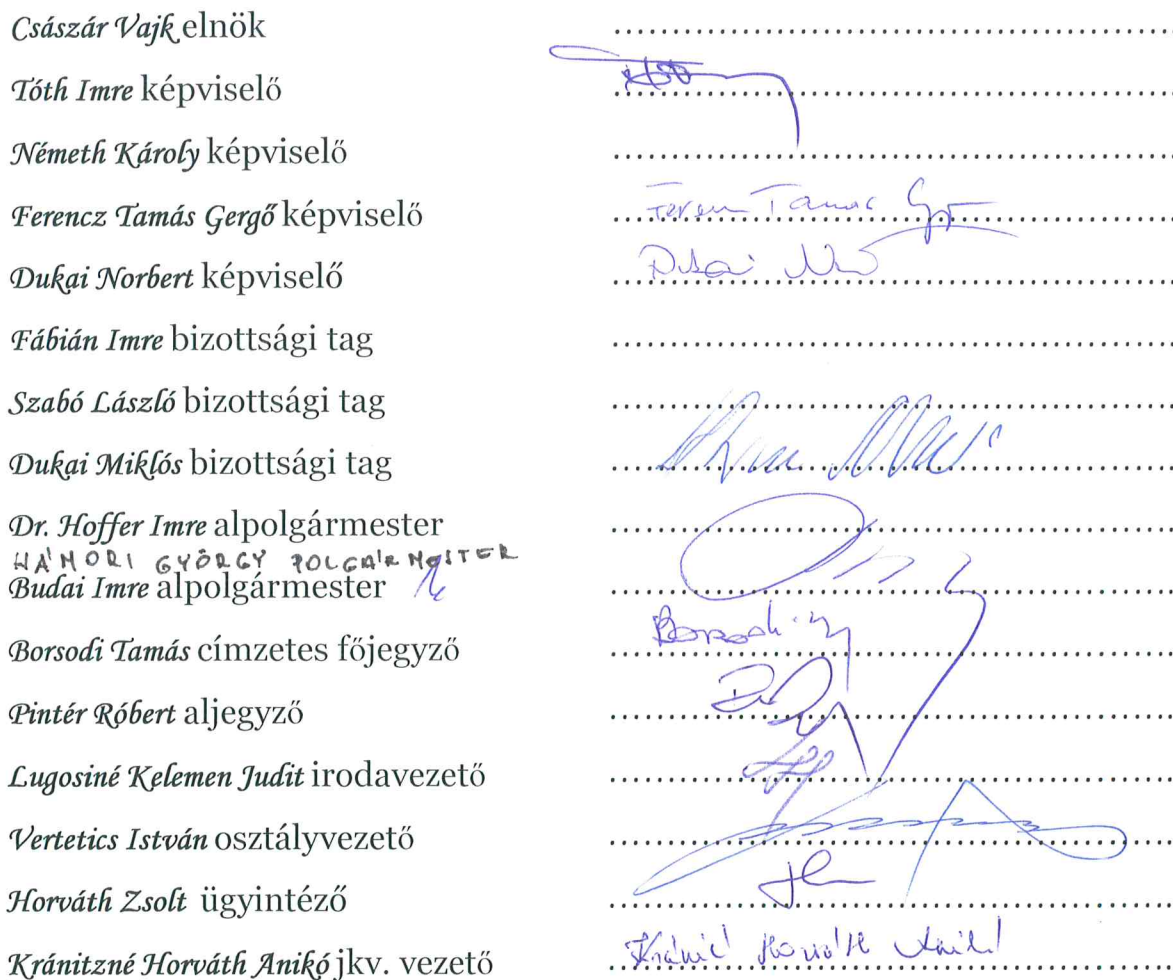 Császár Vajk elnök
Tóth Imre képviselő
Németh Károly képviselő
Ferencz Tamás Gergő képviselő
Tamás
Dukai Norbert képviselő
Fábián Imre bizottsági tag
Szabó László bizottsági tag
Dukai Miklós bizottsági tag
Dr. Hoffer Imre alpolgármester
HÁMORI GYÖRGY POLGÁRMESTER
Budai Imre alpolgármester
Borsodi Tamás címzetes főjegyző
Borsodi
Pintér Róbert aljegyző
Lugosiné Kelemen Judit irodavezető
Vertetics István osztályvezető
Horváth Zsolt ügyintéző
Kránitzné Horváth Anikó jkv. vezető
Horváth Anikó